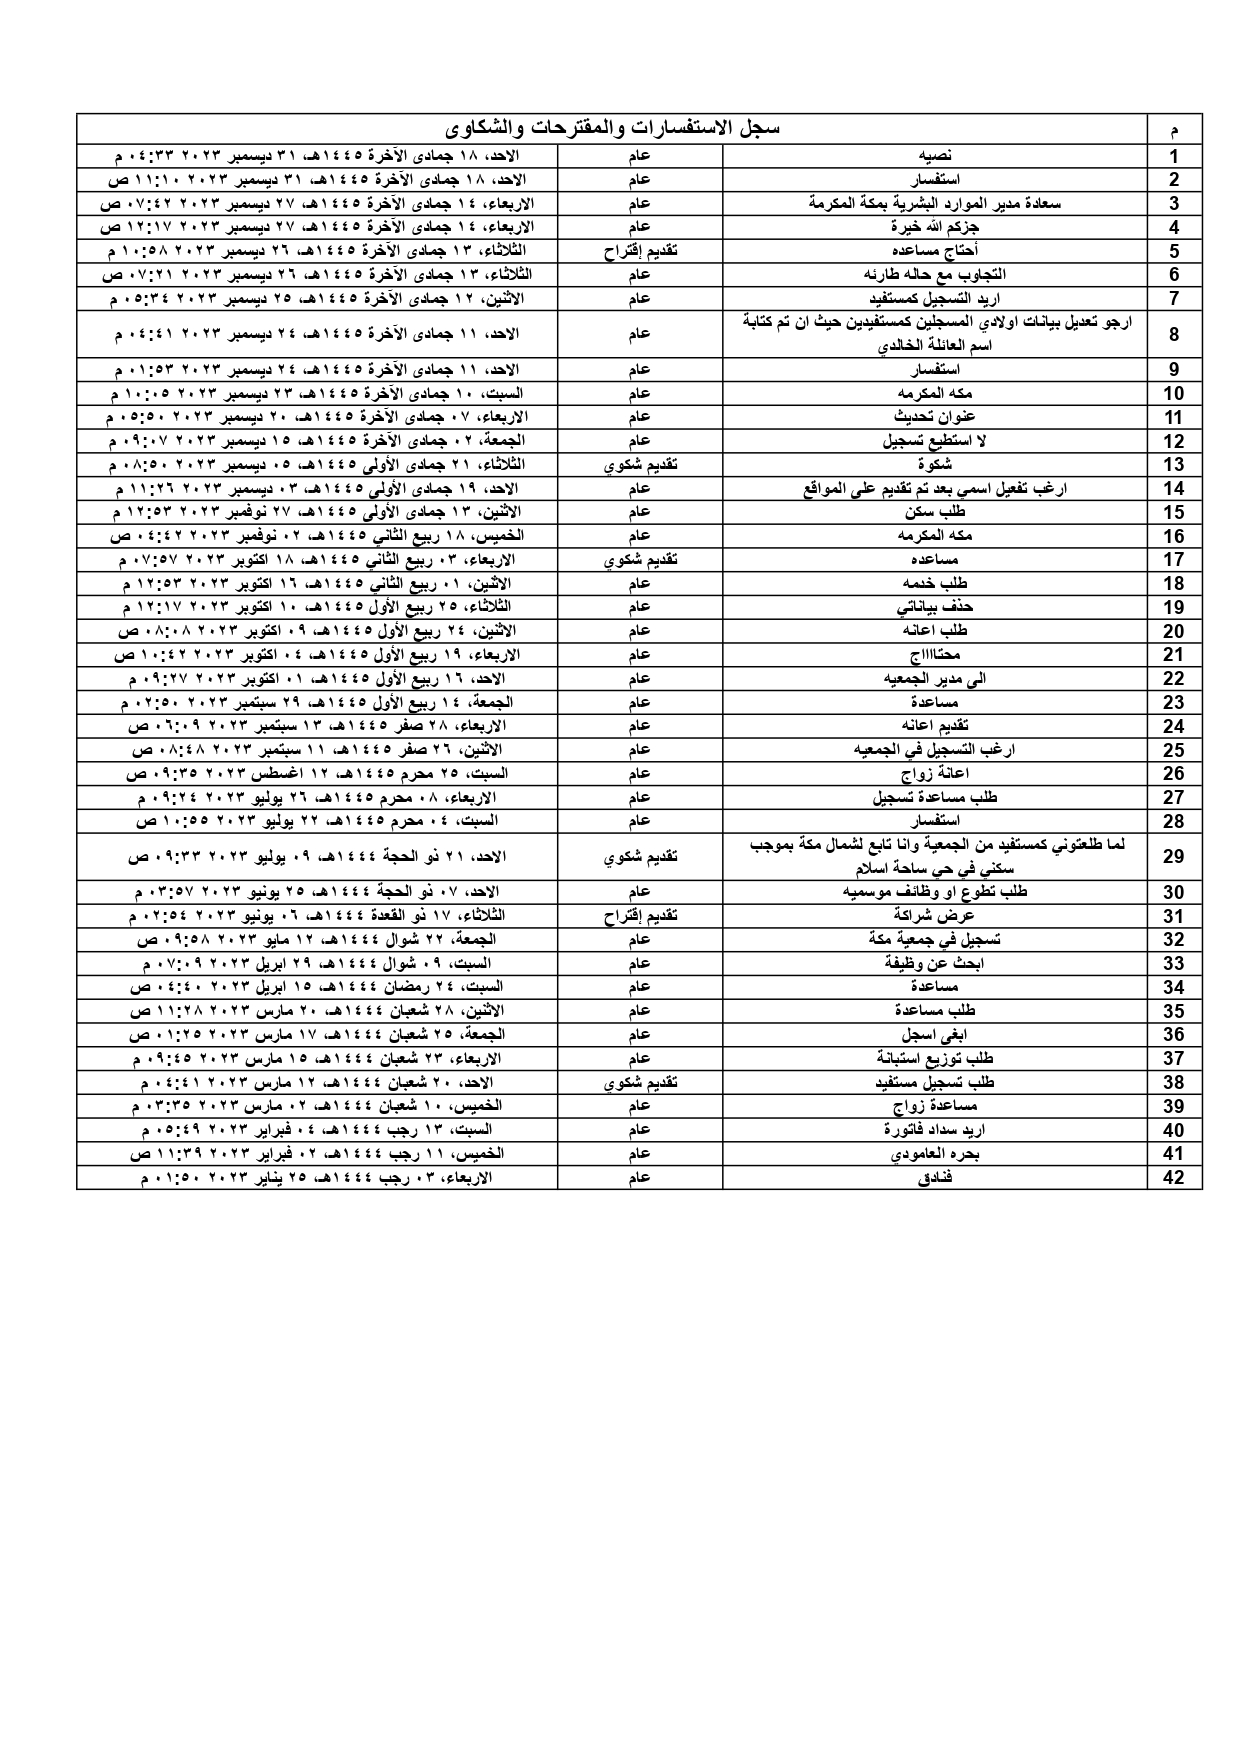 م سجل الاستفسارات والمقترحات والشكاوى
1 نصيه عام الاحد، ١٨ جمادى الآخرة ١٤٤٥هـ، ٣١ ديسمبر ٢٠٢٣ ٠٤:٣٣ م
2 استفسار عام الاحد، ١٨ جمادى الآخرة ١٤٤٥هـ، ٣١ ديسمبر ٢٠٢٣ ١١:١٠ ص
3 سعادة مدير الموارد البشرية بمكة المكرمة عام الاربعاء، ١٤ جمادى الآخرة ١٤٤٥هـ، ٢٧ ديسمبر ٢٠٢٣ ٠٧:٤٢ ص
4 جزكم الله خيرة عام الاربعاء، ١٤ جمادى الآخرة ١٤٤٥هـ، ٢٧ ديسمبر ٢٠٢٣ ١٢:١٧ ص
5 أحتاج مساعده تقديم إقتراح الثلاثاء، ١٣ جمادى الآخرة ١٤٤٥هـ، ٢٦ ديسمبر ٢٠٢٣ ١٠:٥٨ م
6 التجاوب مع حاله طارئه عام الثلاثاء، ١٣ جمادى الآخرة ١٤٤٥هـ، ٢٦ ديسمبر ٢٠٢٣ ٠٧:٢١ ص
7 اريد التسجيل كمستفيد عام الاثنين، ١٢ جمادى الآخرة ١٤٤٥هـ، ٢٥ ديسمبر ٢٠٢٣ ٠٥:٣٤ م
8 ارجو تعديل بيانات اولادي المسجلين كمستفيدين حيث ان تم كتابة
اسم العائلة الخالدي عام الاحد، ١١ جمادى الآخرة ١٤٤٥هـ، ٢٤ ديسمبر ٢٠٢٣ ٠٤:٤١ م
9 استفسار عام الاحد، ١١ جمادى الآخرة ١٤٤٥هـ، ٢٤ ديسمبر ٢٠٢٣ ٠١:٥٣ م
10 مكه المكرمه عام السبت، ١٠ جمادى الآخرة ١٤٤٥هـ، ٢٣ ديسمبر ٢٠٢٣ ١٠:٠٥ م
11 عنوان تحديث عام الاربعاء، ٠٧ جمادى الآخرة ١٤٤٥هـ، ٢٠ ديسمبر ٢٠٢٣ ٠٥:٥٠ م
12 لا استطيع تسجيل عام الجمعة، ٠٢ جمادى الآخرة ١٤٤٥هـ، ١٥ ديسمبر ٢٠٢٣ ٠٩:٠٧ م
13 شكوة تقديم شكوي الثلاثاء، ٢١ جمادى الأولى ١٤٤٥هـ، ٠٥ ديسمبر ٢٠٢٣ ٠٨:٥٠ م
14 ارغب تفعيل اسمي بعد تم تقديم على المواقع عام الاحد، ١٩ جمادى الأولى ١٤٤٥هـ، ٠٣ ديسمبر ٢٠٢٣ ١١:٢٦ م
15 طلب سكن عام الاثنين، ١٣ جمادى الأولى ١٤٤٥هـ، ٢٧ نوفمبر ٢٠٢٣ ١٢:٥٣ م
16 مكه المكرمه عام الخميس، ١٨ ربيع الثاني ١٤٤٥هـ، ٠٢ نوفمبر ٢٠٢٣ ٠٤:٤٢ ص
17 مساعده تقديم شكوي الاربعاء، ٠٣ ربيع الثاني ١٤٤٥هـ، ١٨ اكتوبر ٢٠٢٣ ٠٧:٥٧ م
18 طلب خدمه عام الاثنين، ٠١ ربيع الثاني ١٤٤٥هـ، ١٦ اكتوبر ٢٠٢٣ ١٢:٥٣ م
19 حذف بياناتي عام الثلاثاء، ٢٥ ربيع الأول ١٤٤٥هـ، ١٠ اكتوبر ٢٠٢٣ ١٢:١٧ م
20 طلب اعانه عام الاثنين، ٢٤ ربيع الأول ١٤٤٥هـ، ٠٩ اكتوبر ٢٠٢٣ ٠٨:٠٨ ص
21 محتااااج عام الاربعاء، ١٩ ربيع الأول ١٤٤٥هـ، ٠٤ اكتوبر ٢٠٢٣ ١٠:٤٢ ص
22 الى مدير الجمعيه عام الاحد، ١٦ ربيع الأول ١٤٤٥هـ، ٠١ اكتوبر ٢٠٢٣ ٠٩:٢٧ م
23 مساعدة عام الجمعة، ١٤ ربيع الأول ١٤٤٥هـ، ٢٩ سبتمبر ٢٠٢٣ ٠٢:٥٠ م
24 تقديم اعانه عام الاربعاء، ٢٨ صفر ١٤٤٥هـ، ١٣ سبتمبر ٢٠٢٣ ٠٦:٠٩ ص
25 ارغب التسجيل في الجمعيه عام الاثنين، ٢٦ صفر ١٤٤٥هـ، ١١ سبتمبر ٢٠٢٣ ٠٨:٤٨ ص
26 اعانة زواج عام السبت، ٢٥ محرم ١٤٤٥هـ، ١٢ اغسطس ٢٠٢٣ ٠٩:٣٥ ص
27 طلب مساعدة تسجيل عام الاربعاء، ٠٨ محرم ١٤٤٥هـ، ٢٦ يوليو ٢٠٢٣ ٠٩:٢٤ م
28 استفسار عام السبت، ٠٤ محرم ١٤٤٥هـ، ٢٢ يوليو ٢٠٢٣ ١٠:٥٥ ص
29 لما طلعتوني كمستفيد من الجمعية وانا تابع لشمال مكة بموجب
سكني في حي ساحة اسلام تقديم شكوي الاحد، ٢١ ذو الحجة ١٤٤٤هـ، ٠٩ يوليو ٢٠٢٣ ٠٩:٣٣ ص
30 طلب تطوع او وظائف موسميه عام الاحد، ٠٧ ذو الحجة ١٤٤٤هـ، ٢٥ يونيو ٢٠٢٣ ٠٣:٥٧ م
31 عرض شراكة تقديم إقتراح الثلاثاء، ١٧ ذو القعدة ١٤٤٤هـ، ٠٦ يونيو ٢٠٢٣ ٠٢:٥٤ م
32 تسجيل في جمعية مكة عام الجمعة، ٢٢ شوال ١٤٤٤هـ، ١٢ مايو ٢٠٢٣ ٠٩:٥٨ ص
33 ابحث عن وظيفة عام السبت، ٠٩ شوال ١٤٤٤هـ، ٢٩ ابريل ٢٠٢٣ ٠٧:٠٩ م
34 مساعدة عام السبت، ٢٤ رمضان ١٤٤٤هـ، ١٥ ابريل ٢٠٢٣ ٠٤:٤٠ ص
35 طلب مساعدة عام الاثنين، ٢٨ شعبان ١٤٤٤هـ، ٢٠ مارس ٢٠٢٣ ١١:٢٨ ص
36 ابغى اسجل عام الجمعة، ٢٥ شعبان ١٤٤٤هـ، ١٧ مارس ٢٠٢٣ ٠١:٢٥ ص
37 طلب توزيع استبانة عام الاربعاء، ٢٣ شعبان ١٤٤٤هـ، ١٥ مارس ٢٠٢٣ ٠٩:٤٥ م
38 طلب تسجيل مستفيد تقديم شكوي الاحد، ٢٠ شعبان ١٤٤٤هـ، ١٢ مارس ٢٠٢٣ ٠٤:٤١ م
39 مساعدة زواج عام الخميس، ١٠ شعبان ١٤٤٤هـ، ٠٢ مارس ٢٠٢٣ ٠٣:٣٥ م
40 اريد سداد فاتورة عام السبت، ١٣ رجب ١٤٤٤هـ، ٠٤ فبراير ٢٠٢٣ ٠٥:٤٩ م
41 بحره العامودي عام الخميس، ١١ رجب ١٤٤٤هـ، ٠٢ فبراير ٢٠٢٣ ١١:٣٩ ص
42 فنادق عام الاربعاء، ٠٣ رجب ١٤٤٤هـ، ٢٥ يناير ٢٠٢٣ ٠١:٥٠ م